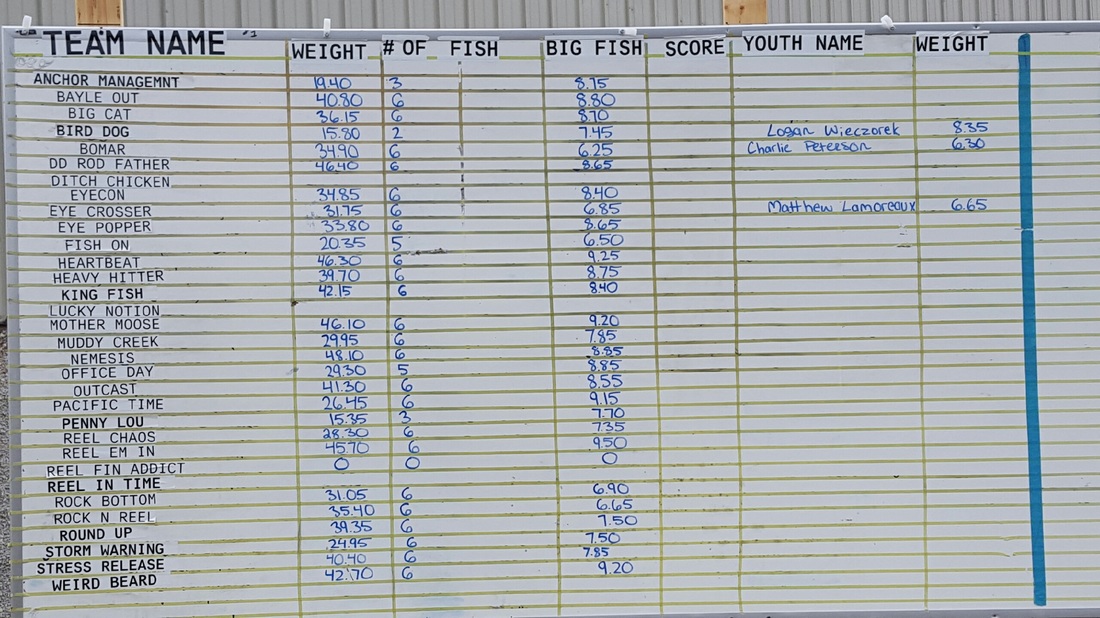 TEAM NAME WEIGHT # OF FISH BIG FISH SCORE YOUTH NAME WEIGHT
ANCHOR MANAGEMNT 19.40 3 8.75
BAYLE OUT 40.80 6 8.80
BIG CAT 36.15 6 8.70
BIRD DOG 15.80 2 7.45 Logan Wieczorek 8.35
BOMAR 34.90 6 6.25 Charlie Peterson 6.30
DD ROD FATHER 46.40 6 8.65
DITCH CHICKEN
EYECON 34.85 6 8.40
EYE CROSSER 31.75 6 6.85 Matthew Lamoreaux 6.65
EYE POPPER 33.80 6 8.65
FISH ON 20.35 5 6.50
HEARTBEAT 46.30 6 9.25
HEAVY HITTER 39.70 6 8.75
KING FISH 42.15 6 8.40
LUCKY NOTION
MOTHER MOOSE 46.10 6 9.20
MUDDY CREEK 29.95 6 7.85
NEMESIS 48.10 6 8.85
OFFICE DAY 29.30 5 8.85
OUTCAST 41.30 6 8.55
PACIFIC TIME 26.45 6 9.15
PENNY LOU 15.35 3 7.70
REEL CHAOS 28.30 6 7.35
REEL EM IN 45.70 6 9.50
REEL FIN ADDICT 0 0 0
REEL IN TIME
ROCK BOTTOM 31.05 6 6.90
ROCK N REEL 35.40 6 6.65
ROUND UP 39.35 6 7.50
STORM WARNING 24.95 6 7.50
STRESS RELEASE 40.40 6 7.85
WEIRD BEARD 42.70 6 9.20